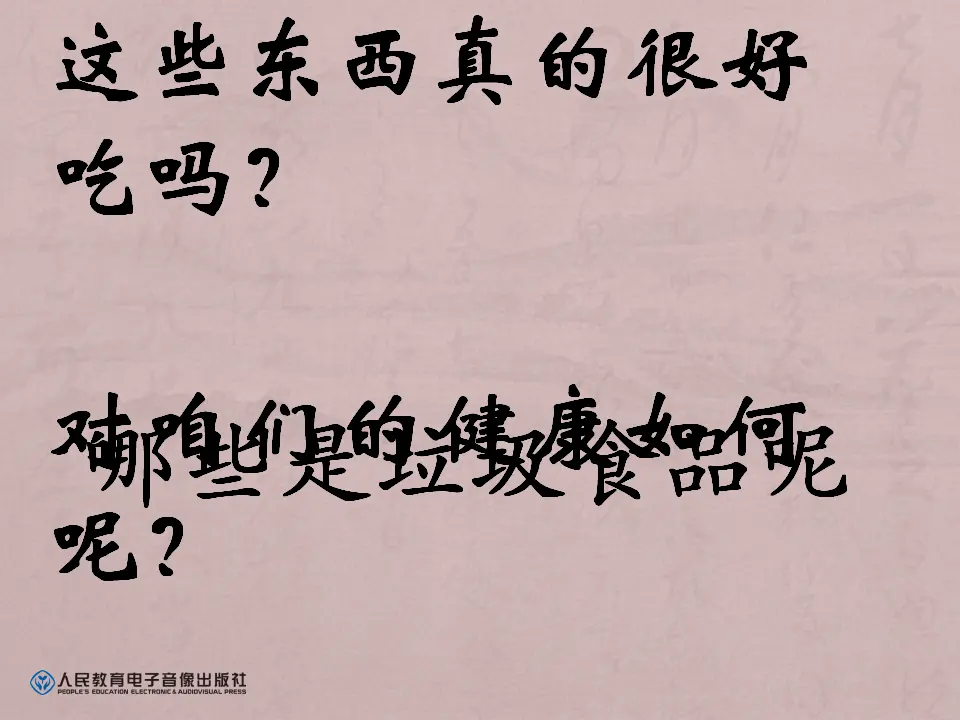 这些东西真的很好
吃吗？
对咱们的健康如何
呢？
哪些是垃圾食品呢
人民教育电子音像出版社
PEOPLE'S EDUCATION ELECTRONIC & AUDIOVISUAL PRESS